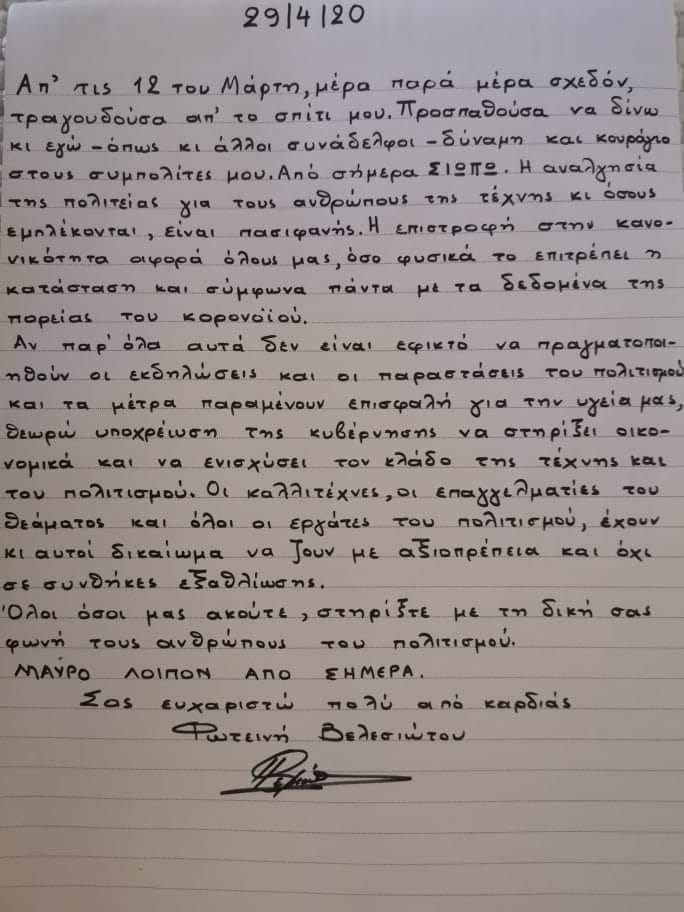 29/4/20
Απ' τις 12 του Μάρτη, μέρα παρά μέρα σχεδόν,
τραγουδούσα απ' το σπίτι μου. Προσπαθούσα να δίνω
κι εγώ - όπως κι άλλοι συνάδελφοι - δύναμη και κουράγιο
στους συμπολίτες μου. Από σήμερα ΣΙΩΠΩ. Η αναλγησία
της πολιτείας για τους ανθρώπους της τέχνης κι όσους
εμπλέκονται, είναι πασιφανής. Η επιστροφή στην κανο-
νικότητα αφορά όλους μας, όσο φυσικά το επιτρέπει η
κατάσταση και σύμφωνα πάντα με τα δεδομένα της
πορείας του κορονοϊού.
Αν παρ' όλα αυτά δεν είναι εφικτό να πραγματοποι-
ηθούν οι εκδηλώσεις και οι παραστάσεις του πολιτισμού
και τα μέτρα παραμένουν επισφαλή για την υγεία μας,
θεωρώ υποχρέωση της κυβέρνησης να στηρίξει οικο-
νομικά και να ενισχύσει τον κλάδο της τέχνης και
του πολιτισμού. Οι καλλιτέχνες, οι επαγγελματίες του
θεάματος και όλοι οι εργάτες του πολιτισμού, έχουν
κι αυτοί δικαίωμα να ζουν με αξιοπρέπεια και όχι
σε συνθήκες εξαθλίωσης.
Όλοι όσοι μας ακούτε, στηρίξτε με τη δική σας
φωνή τους ανθρώπους του πολιτισμού.
ΜΑΥΡΟ ΛΟΙΠΟΝ ΑΠΟ ΣΗΜΕΡΑ.
Σας ευχαριστώ πολύ από καρδιάς
Φωτεινή Βελεσιώτου